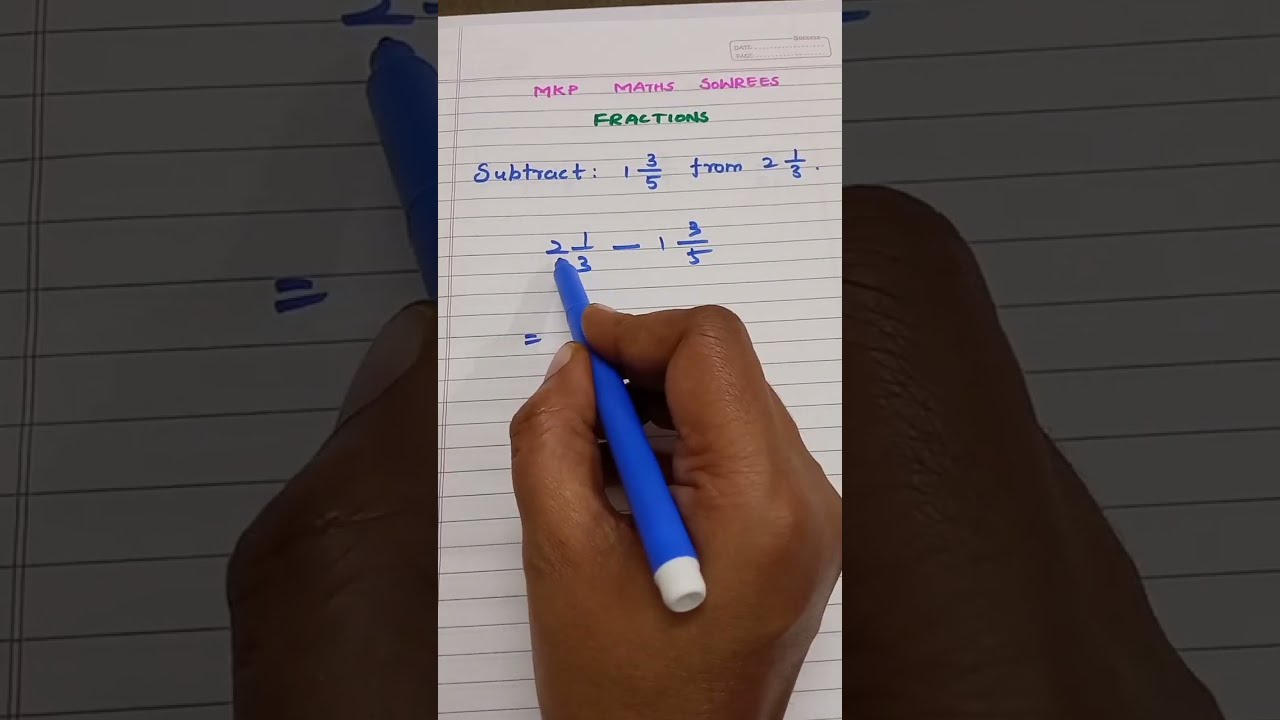 Success
DATE
PAGE
MKP MATHS SOWREES
FRACTIONS
Subtract: 1 3/5 from 2 1/3.
2 1/3 — 1 3/5
=